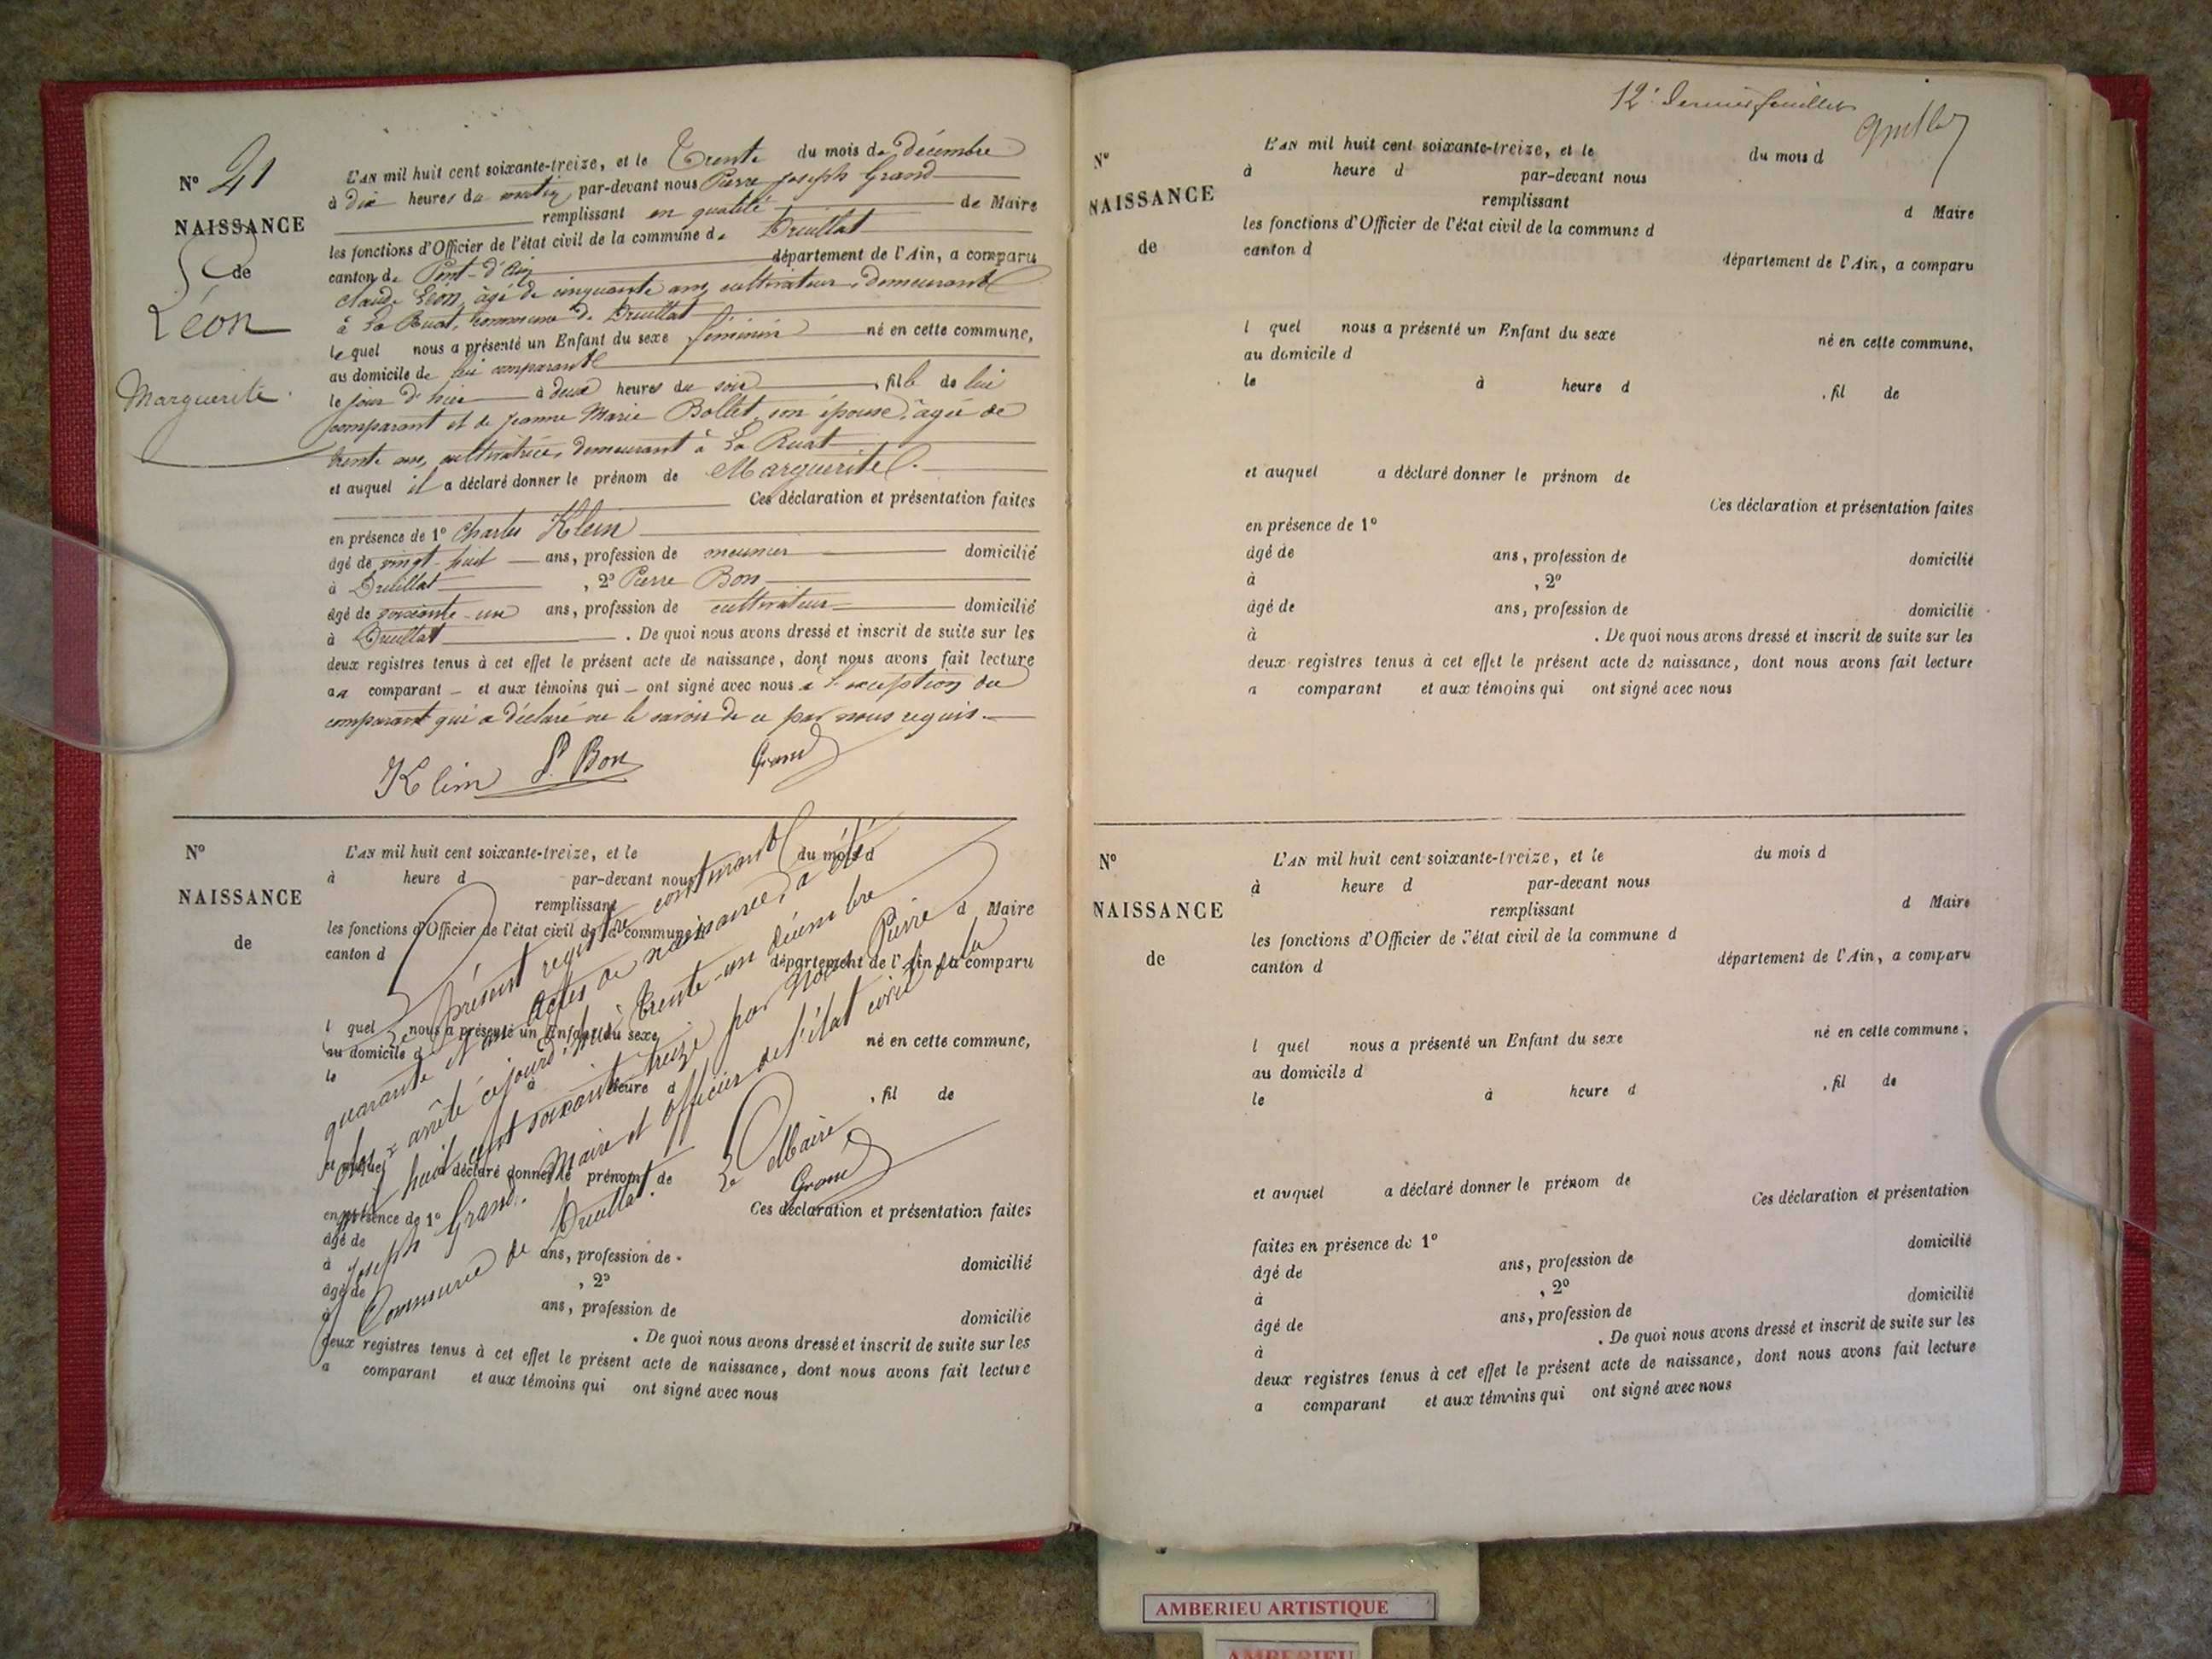 N° 41
NAISSANCE
de
Léon
Marguerite
L'AN mil huit cent soixante-treize, et le Trente du mois de décembre
à dix heures du matin par-devant nous Pierre Joseph Grand
remplissant en qualité de Maire
les fonctions d'Officier de l'état civil de la commune de Druillat
canton de Pont-d'Ain département de l'Ain, a comparu
Claude Léon, âgé de cinquante ans, cultivateur, demeurant
à La Ruat, commune de Druillat
lequel nous a présenté un Enfant du sexe féminin né en cette commune,
au domicile de lui comparant
le jour d'hier à deux heures du soir , fille de lui
comparant et de Jeanne Marie Bollet, son épouse, âgée de
trente ans, cultivatrice, demeurant à La Ruat
et auquel il a déclaré donner le prénom de Marguerite.
Ces déclaration et présentation faites
en présence de 1° Charles Klein
âgé de vingt-huit ans, profession de meunier domicilié
à Druillat , 2° Pierre Bon
âgé de soixante-un ans, profession de cultivateur domicilié
à Druillat . De quoi nous avons dressé et inscrit de suite sur les
deux registres tenus à cet effet le présent acte de naissance, dont nous avons fait lecture
au comparant et aux témoins qui ont signé avec nous à l'exception du
comparant qui a déclaré ne le savoir de ce par nous requis.
Klein P. Bon Grand
N°
NAISSANCE
de
L'AN mil huit cent soixante-treize, et le du mois d
à heure d par-devant nous
remplissant d Maire
les fonctions d'Officier de l'état civil de la commune d
canton d département de l'Ain, a comparu
l quel nous a présenté un Enfant du sexe né en cette commune,
au domicile d
le à heure d , fil de
et auquel a déclaré donner le prénom de
Ces déclaration et présentation faites
en présence de 1°
âgé de ans, profession de domicilié
à , 2°
âgé de ans, profession de domicilié
à . De quoi nous avons dressé et inscrit de suite sur les
deux registres tenus à cet effet le présent acte de naissance, dont nous avons fait lecture
a comparant et aux témoins qui ont signé avec nous
Le présent registre contenant
quarante et un actes de naissance, a été
clos & arrêté ce jourd'hui trente-un décembre
mil huit cent soixante-treize par Nous Pierre
Joseph Grand, Maire et officier de l'état civil de la
Commune de Druillat.
Le Maire
Grand
12e dernier feuillet
N°
NAISSANCE
de
L'AN mil huit cent soixante-treize, et le du mois d
à heure d par-devant nous
remplissant d Maire
les fonctions d'Officier de l'état civil de la commune d
canton d département de l'Ain, a comparu
l quel nous a présenté un Enfant du sexe né en cette commune,
au domicile d
le à heure d , fil de
et auquel a déclaré donner le prénom de
Ces déclaration et présentation faites
en présence de 1°
âgé de ans, profession de domicilié
à , 2°
âgé de ans, profession de domicilié
à . De quoi nous avons dressé et inscrit de suite sur les
deux registres tenus à cet effet le présent acte de naissance, dont nous avons fait lecture
a comparant et aux témoins qui ont signé avec nous
N°
NAISSANCE
de
L'AN mil huit cent soixante-treize, et le du mois d
à heure d par-devant nous
remplissant d Maire
les fonctions d'Officier de l'état civil de la commune d
canton d département de l'Ain, a comparu
l quel nous a présenté un Enfant du sexe né en cette commune,
au domicile d
le à heure d , fil de
et auquel a déclaré donner le prénom de
Ces déclaration et présentation
faites en présence de 1° domicilié
âgé de ans, profession de
à , 2° domicilié
âgé de ans, profession de
à . De quoi nous avons dressé et inscrit de suite sur les
deux registres tenus à cet effet le présent acte de naissance, dont nous avons fait lecture
a comparant et aux témoins qui ont signé avec nous
AMBERIEU ARTISTIQUE
AMBERIEU